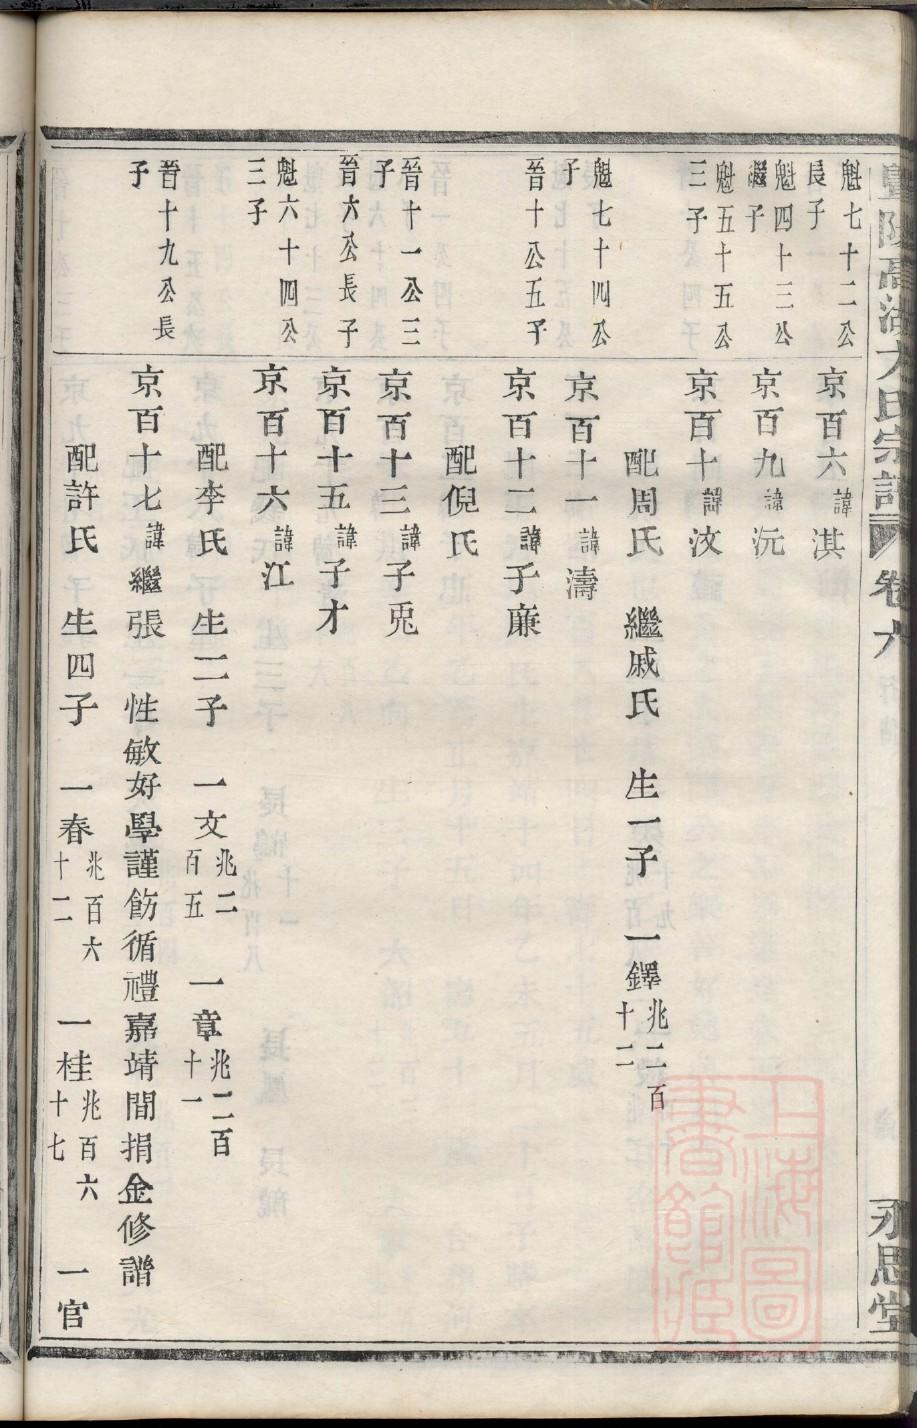 高湖方氏宗譜 卷六 永思堂
魁七十二公
長子
京百六諱淇
魁四十三公
繼子
京百九諱沅
魁五十五公
三子
京百十諱汶
配周氏 繼戚氏 生一子 一鐸兆二百十二
魁七十四公
子
京百十一諱濤
晉十公五子
京百十二諱子廉
配倪氏
晉十一公三
子
京百十三諱子兎
晉六公長子
京百十五諱子才
魁六十四公
三子
京百十六諱江
配李氏 生二子 一文兆二百五 一章兆二百十一
晉十九公長
子
京百十七諱繼張 性敏好學謹飭循禮嘉靖間捐金修譜
配許氏 生四子 一春兆百六十二 一桂兆百六十七 一官
上海圖書館藏